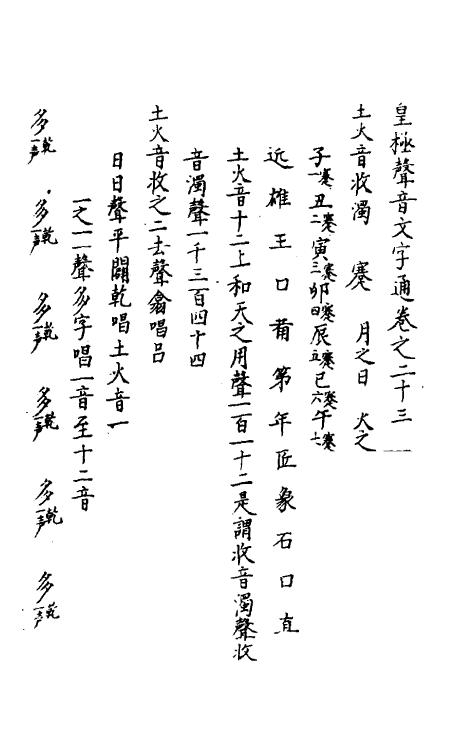 皇極聲音文字通卷之二十三
土火音收濁　蹇　月之日　火之
子一蹇丑二蹇寅三蹇卯四蹇辰五蹇巳六蹇午七蹇
近雄王口莆第年匠象石口直
土火音十二上和天之用聲一百一十二是謂收音濁聲收
音濁聲一千三百四十四
土火音收之二去聲翕唱吕
日日聲平闢乾唱土火音一
一之一聲多字唱一音至十二音
多乾一声　多乾一声　多乾一声　多乾一声　多乾一声　多乾一声